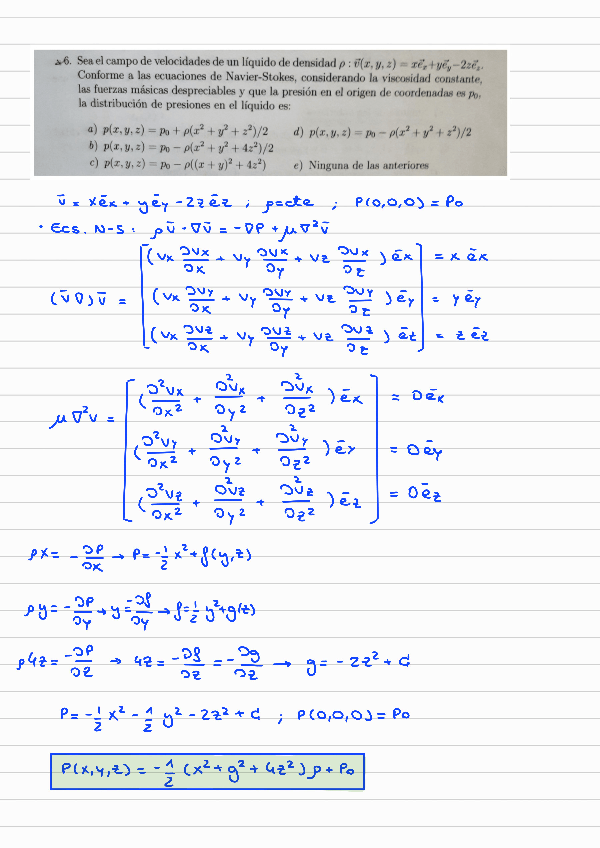 6. Sea el campo de velocidades de un líquido de densidad ρ : v⃗(x, y, z) = xe⃗ₓ+ye⃗ᵧ−2ze⃗_z.
Conforme a las ecuaciones de Navier-Stokes, considerando la viscosidad constante,
las fuerzas másicas despreciables y que la presión en el origen de coordenadas es p₀,
la distribución de presiones en el líquido es:
a) p(x, y, z) = p₀ + ρ(x² + y² + z²)/2 d) p(x, y, z) = p₀ − ρ(x² + y² + z²)/2
b) p(x, y, z) = p₀ − ρ(x² + y² + 4z²)/2
c) p(x, y, z) = p₀ − ρ((x + y)² + 4z²) e) Ninguna de las anteriores
v̄ = x ēx + y ēy − 2z ēz ; ρ=cte ; P(0,0,0) = P₀
· Ecs. N-S: ρ v̄ · ∇v̄ = −∇P + μ∇²v̄
(vx ∂vx/∂x + vy ∂vx/∂y + vz ∂vx/∂z) ēx = x ēx
(v̄ ∇) v̄ = (vx ∂vy/∂x + vy ∂vy/∂y + vz ∂vy/∂z) ēy = y ēy
(vx ∂vz/∂x + vy ∂vz/∂y + vz ∂vz/∂z) ēz = z ēz
(∂²vx/∂x² + ∂²vx/∂y² + ∂²vx/∂z²) ēx = 0 ēx
μ ∇²v = (∂²vy/∂x² + ∂²vy/∂y² + ∂²vy/∂z²) ēy = 0 ēy
(∂²vz/∂x² + ∂²vz/∂y² + ∂²vz/∂z²) ēz = 0 ēz
ρx = −∂P/∂x → P = −1/2 x² + f(y,z)
ρy = −∂P/∂y → y = −∂f/∂y → f = 1/2 y² + g(z)
ρ4z = −∂P/∂z → 4z = −∂f/∂z = −∂g/∂z → g = −2z² + C
P = −1/2 x² − 1/2 y² − 2z² + C ; P(0,0,0) = P₀
P(x,y,z) = −1/2 (x² + y² + 4z²) ρ + P₀